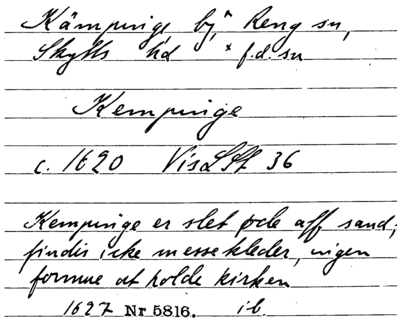 Kämpinge, by, * Räng sn,
Skytts hd * f.d. sn
Kempinge
c. 1620 VisLSt 36
Kempinge er slet øde aff sand;
findis icke messekleder, ingen
formue at holde kirken
1627 Nr 5816. ib.